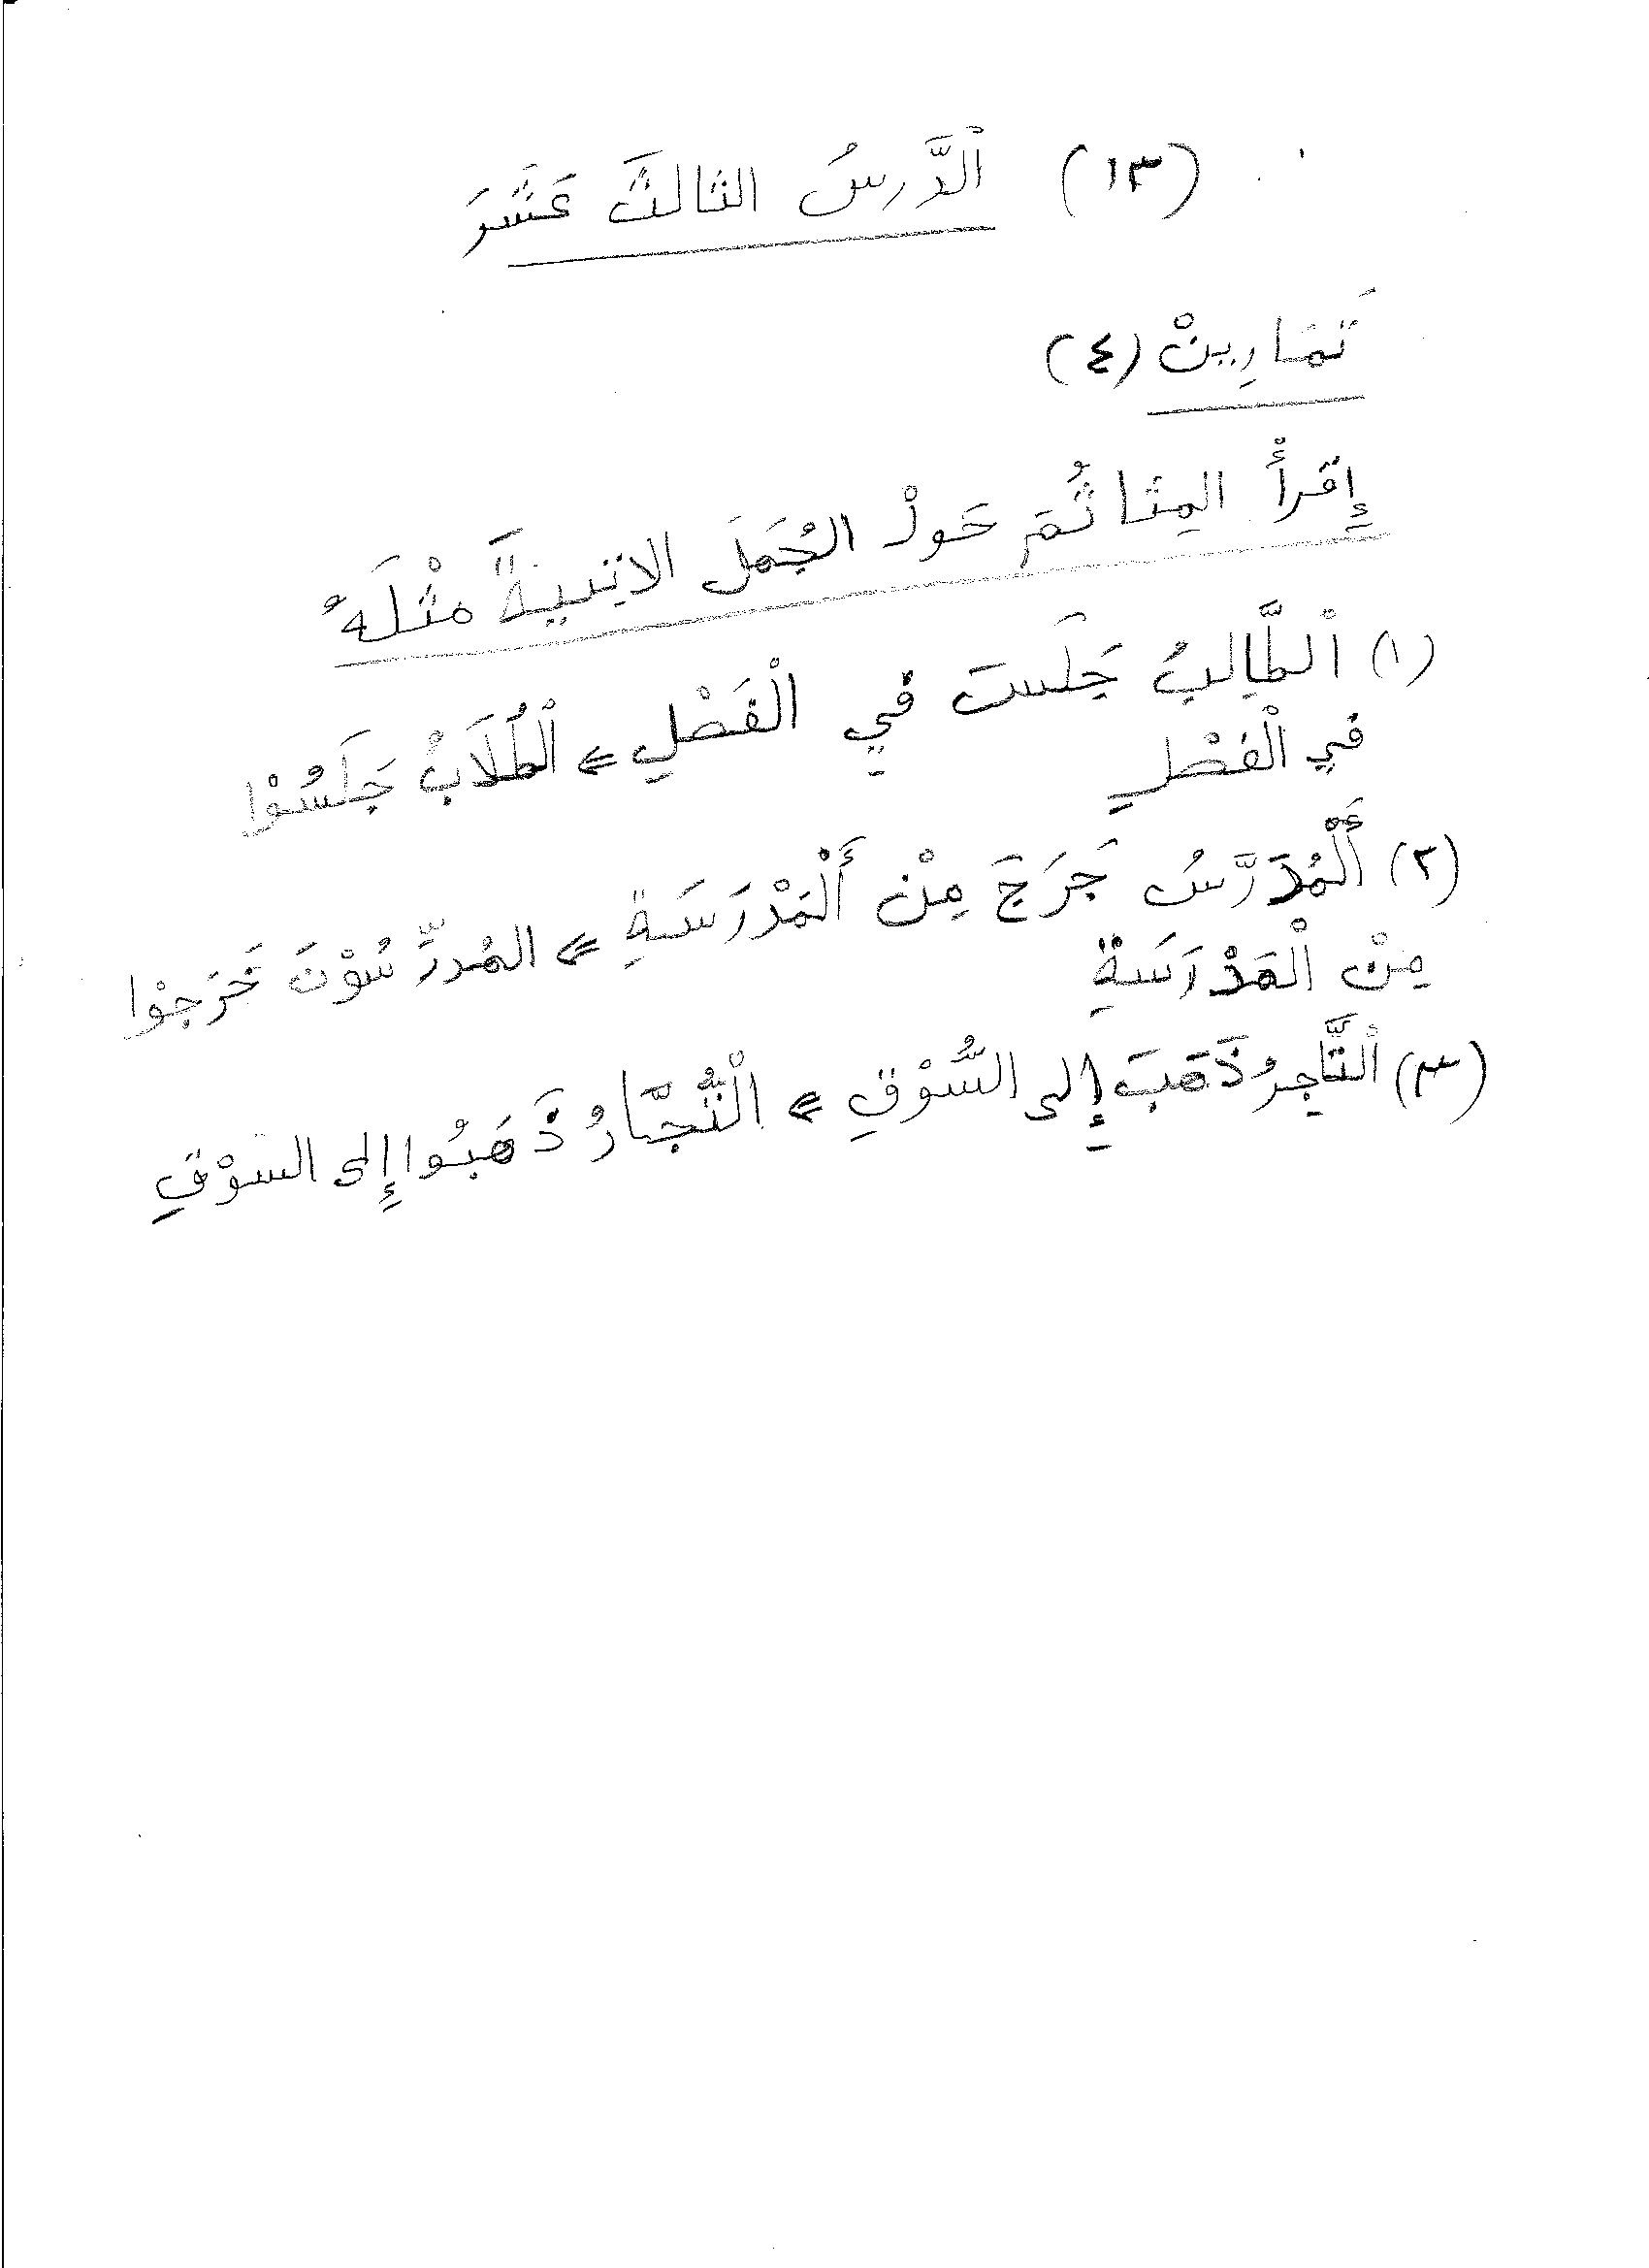 (١٣) اَلْدَّرسُ الثالثَ عَشَرَ
تَمَارِينْ (٤)
إِقْرأْ المِثا ثُمَ حَولْ الجُمَلَ الاتييةَ مْثلَهُ
(١) اْلطَّالِبُ جَلَست في الْفَصْلِ ⇐ الْطُلَابْ جَلَسُوْا
في الْفصْلِ
(٢) أَلْمُدَرَّسُ جَرَجَ مِنْ أَلْمَدْرَسَةِ ⇐ المُدرِّسُوْنَ خَرَجوْا
مِنْ الْمَدْرَسَةِ
(٣) اْلتَّاجِرُ ذَهَبَ إِلى السُّوْقِ ⇐ الْتُجَّارُ ذَهَبُوا إِلى السوْقِ